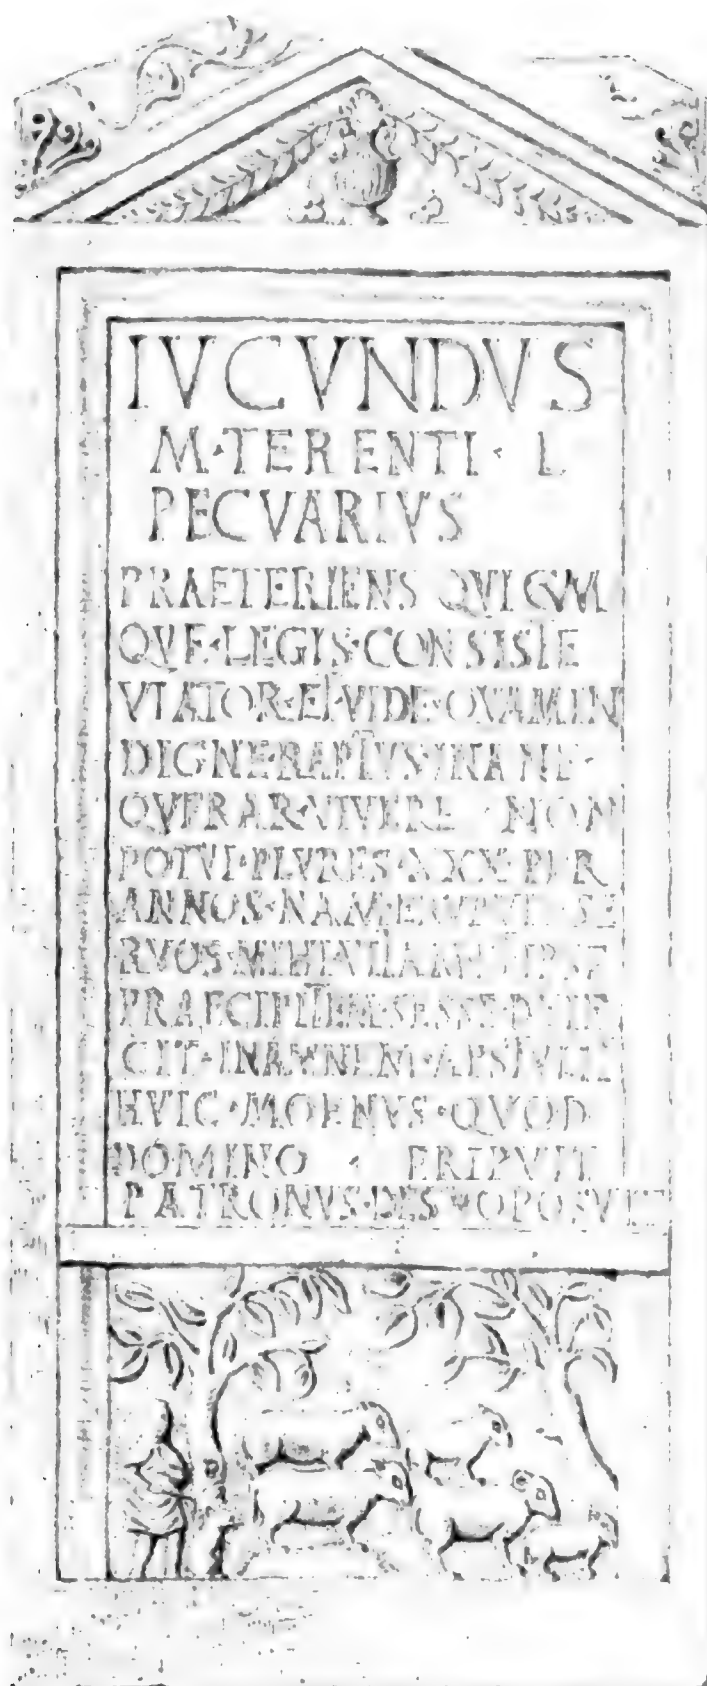 IVCVNDVS
M·TERENTI·L
PECVARIVS
PRAETERIENS QVICVM
QVE·LEGIS·CONSISTE
VIATOR·ET·VIDE·QVAM·IN
DIGNE·RAPTVS·INANE·
QVERAR·VIVERE·NON
POTVI·PLVRES·XXX·PER
ANNOS·NAM·ERVPVIT·SE
RVOS·MIHI·VITAM·ET·IPSE
PRAECIPITEM·SESSE·DEIE
CIT·INAMNEM·APSTVLIT
HVIC·MOENVS·QVOD
DOMINO · ERIPVIT
PATRONVS·DE·S VO POSVIT